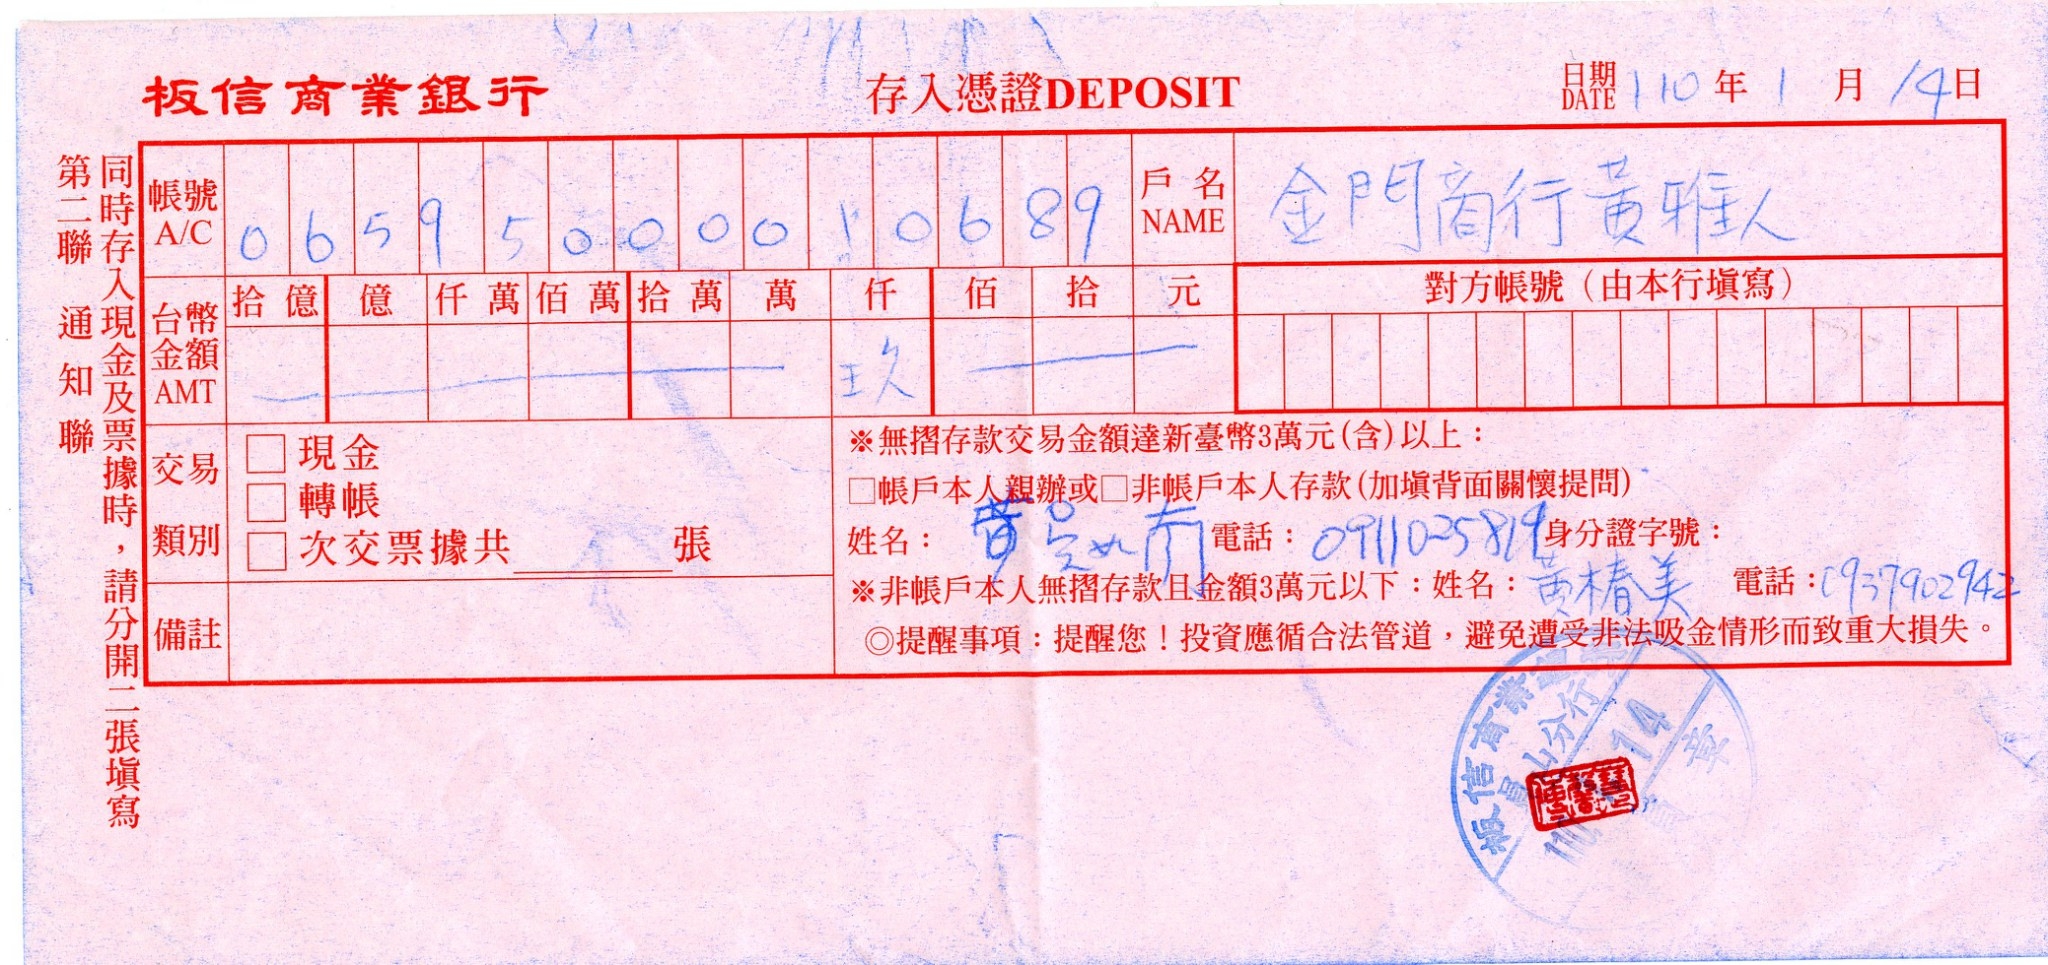 板信商業銀行 存入憑證DEPOSIT 日期 DATE 110年1月14日
同時存入現金及票據時，請分開二張填寫
第二聯 通知聯
帳號 A/C 0 6 5 9 5 0 0 0 0 1 0 6 8 9 戶名 NAME 金門商行黃雅人
台幣金額 AMT 拾億 億 仟萬 佰萬 拾萬 萬 仟 佰 拾 元 對方帳號（由本行填寫）
玖
交易類別 □現金
□轉帳
□次交票據共 張
備註
※無摺存款交易金額達新臺幣3萬元(含)以上：
□帳戶本人親辦或□非帳戶本人存款(加填背面關懷提問)
姓名： 黃吳 電話：0911025819 身分證字號：
※非帳戶本人無摺存款且金額3萬元以下：姓名：黃椿美 電話：0937902942
◎提醒事項：提醒您！投資應循合法管道，避免遭受非法吸金情形而致重大損失。
板信商業銀
員山分行
14
章
110